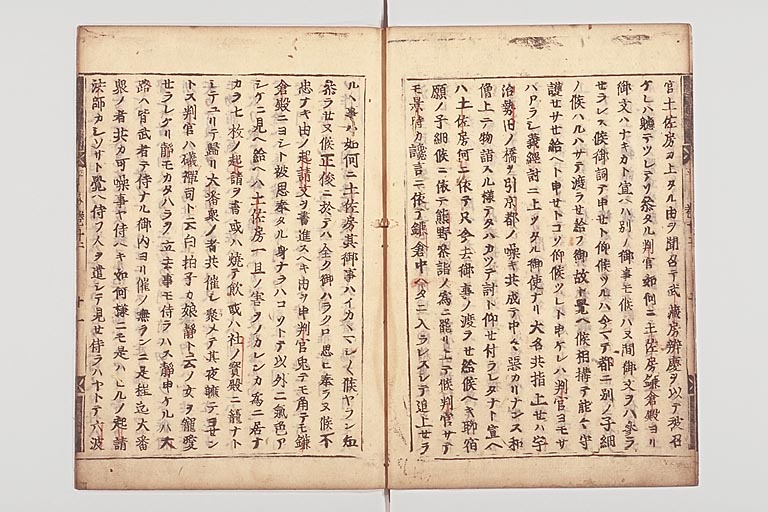 官土佐房カ上タル由ヲ聞召テ武蔵房辨慶ヲ以テ被召
ケレハ軈テツレテソ参タル判官如何ニ土佐房鎌倉殿ヨリ
御文ハナキカト宣ヘハ別ノ御事モ候ハヌ間御文ヲハ参ラ
セラレス候御詞テ申セト仰候ツルハ今マテ都ニ別ノ子細
ノ候ハヌハサテ渡ラセ給フ御故ト覺ヘ候相構テ能々守
護セサセ給ヘト申セトコソ仰候ツレト申ケレハ判官ヨモサ
ハアラシ義經討ニ上ツタル御使ナリ大名共指上セハ宇
治勢田ノ橋ヲ引京都ノ噪キ共成テ中々惡カリナンス和
僧上テ物詣スル様テタハカツテ討ト仰セ付ラレタナト宣ヘ
ハ土佐房何ニ依テ只今去御事ノ渡ラセ給候ヘキ聊宿
願ノ子細候ニ依テ熊野参詣ノ為ニ罷リ上テ候判官サテ
モ景時カ讒言ニ依テ鎌倉中ヘタニ入ラレスシテ追上セラ
ルヘ事ハ如何ニ土佐房其御事ハイカヽマシマシ候ヤラン
参ラセヌ候正俊ニ於テハ全ク御ハラクロ思ヒ奉ラヌ候不
忠ナキ由ノ起請文ヲ書進スヘキ由ヲ申判官兎テモ角テモ鎌
倉殿ニヨシト被思奉タル身ナラハコソトテ以外ニ氣色ア
シケニ見ヘ給ヘハ土佐房一旦ノ害ヲノカレンカ為ニ居ナ
カラ七枚ノ起請ヲ書或ハ焼テ飲或ハ社ノ寳殿ニ籠ナト
シテユリテ歸リ大番衆ノ者共催シ聚メテ其夜軈テヨセン
トス判官ハ磯禪司ト云白拍子カ娘靜ト云ノ女ヲ寵愛
セラレケリ靜モカタハラヲ立去事モ侍ラハス靜申ケルハ大
路ハ皆武者テ侍ナル御内ヨリ催ノ無ランニ是程迄大番
衆ノ者共カ可噪事ヤ侍ヘキ如何様ニモ是ハヒルノ起請
法師カシワサト覺ヘ侍フ人ヲ遣シテ見セ侍ラハヤトテ六波